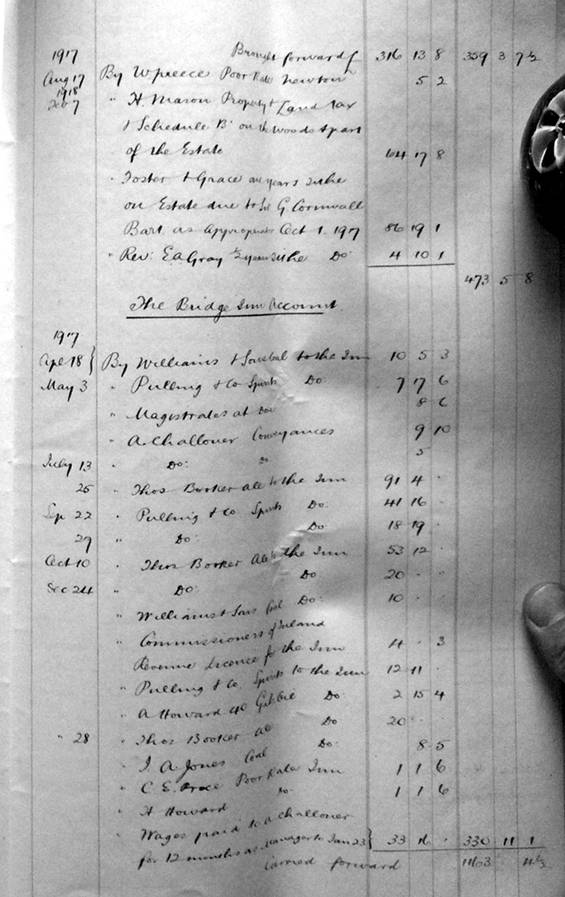 1917 Brought forward £ 316 13 8 359 3 7½
Aug 17 By W preece Poor Rate Newton 5 2
1918
Feb 7 " H. Mason Property & Land tax
& Schedule 'B' on the Woods & part
of the Estate 64 17 8
" Foster & Grace one years tithe
on Estate due to Sir G Cornwall
Bart. as appropriate Oct 1. 1917 86 19 1
" Rev: E A Gray ½ years tithe Do 4 10 1
473 5 8
The Bridge Inn Account
1917
Apl 18 By Williams & Sons coal to the Inn 10 5 3
May 3 " Pulling & Co Spirits Do 7 17 6
" Magistrates at Do 8 6
" A. Challoner Conveyances 9 10
July 13 " Do: Do 5
25 " Thos Booker ale to the Inn 91 4 "
Sep 22 " Pulling & Co Spirits Do: 41 16 "
29 " Do: Do 18 19 "
Oct 10 " Thos Booker Ale to the Inn 53 12 "
Dec 24 " Do: Do 20 " "
" Williams & Sons Coal Do: 10 " "
" Commissioners of Inland
Revenue Licence for the Inn 4 " 3
" Pulling & Co. Spirits to the Inn 12 11 "
" A Howard Do: 2 15 4
" 28 " Thos Booker ale Do 20 " "
" J. A. Jones Coal Do: 8 5
" C. E. Price Poor Rate Inn 1 1 6
" H Howard Do: 1 1 6
" Wages paid to A Challoner
for 12 months as Manager to Jan 23 33 16 " 330 11 1
Carried forward 1163 " 4½